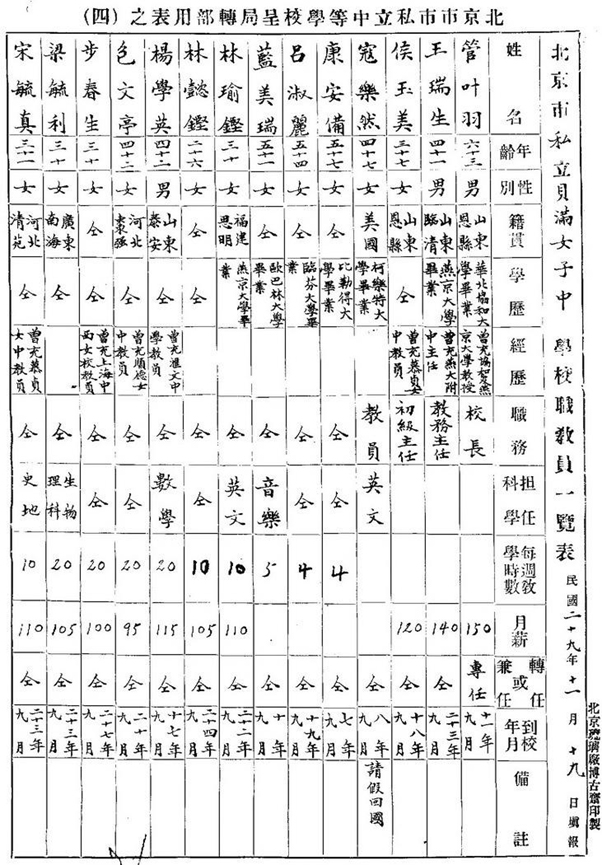 北京市市私立中等學校呈局轉部用表之（四）
北京市私立貝滿女子中 學校職教員一覽表 民國二十九年十一月十九日填報
北京琉璃廠博古齋印製
姓名 年齡 性別 籍貫 學歷 經歷 職務 担任學科 每週教學時數 月薪 轉任或兼任 到校年月 備註
管叶羽 六十三 男 山東恩縣 華北協和大學畢業 曾充協和及燕京大學教授 校長 150 專任 十一年九月
王瑞生 四十一 男 山東臨清 燕京大學畢業 曾充燕大附中主任 教務主任 140 仝 二十三年九月
侯玉美 三十七 女 山東恩縣 仝 曾充慕貞女中教員 初級主任 120 仝 十八年九月
寇樂然 四十七 女 美國 柯樂特大學畢業 教員 英文 仝 八年九月 請假回國
康安備 五十七 女 仝 比勒得大學畢業 仝 仝 4 仝 七年九月
呂淑麗 五十四 女 仝 臨芬大學畢業 仝 仝 4 仝 十九年九月
藍美瑞 五十一 女 仝 歐巴林大學畢業 仝 音樂 5 仝 十年九月
林瑜鏗 三十 女 福建思明 燕京大學畢業 仝 英文 10 110 仝 二十二年九月
林懿鏗 二十六 女 仝 仝 仝 仝 10 105 仝 二十四年九月
楊學英 四十二 男 山東泰安 仝 曾充滙文中學教員 仝 數學 20 115 仝 十七年九月
包文亭 四十二 女 河北棗强 仝 曾充順德女中教員 仝 仝 20 95 仝 二十年九月
步春生 三十 女 仝 仝 曾充上海中西女校教員 仝 仝 20 100 仝 二十七年九月
梁毓利 三十 女 廣東南海 仝 仝 生物理科 20 105 仝 二十三年九月
宋毓真 三十一 女 河北清苑 仝 曾充慕貞女中教員 仝 史地 10 110 仝 二十三年九月